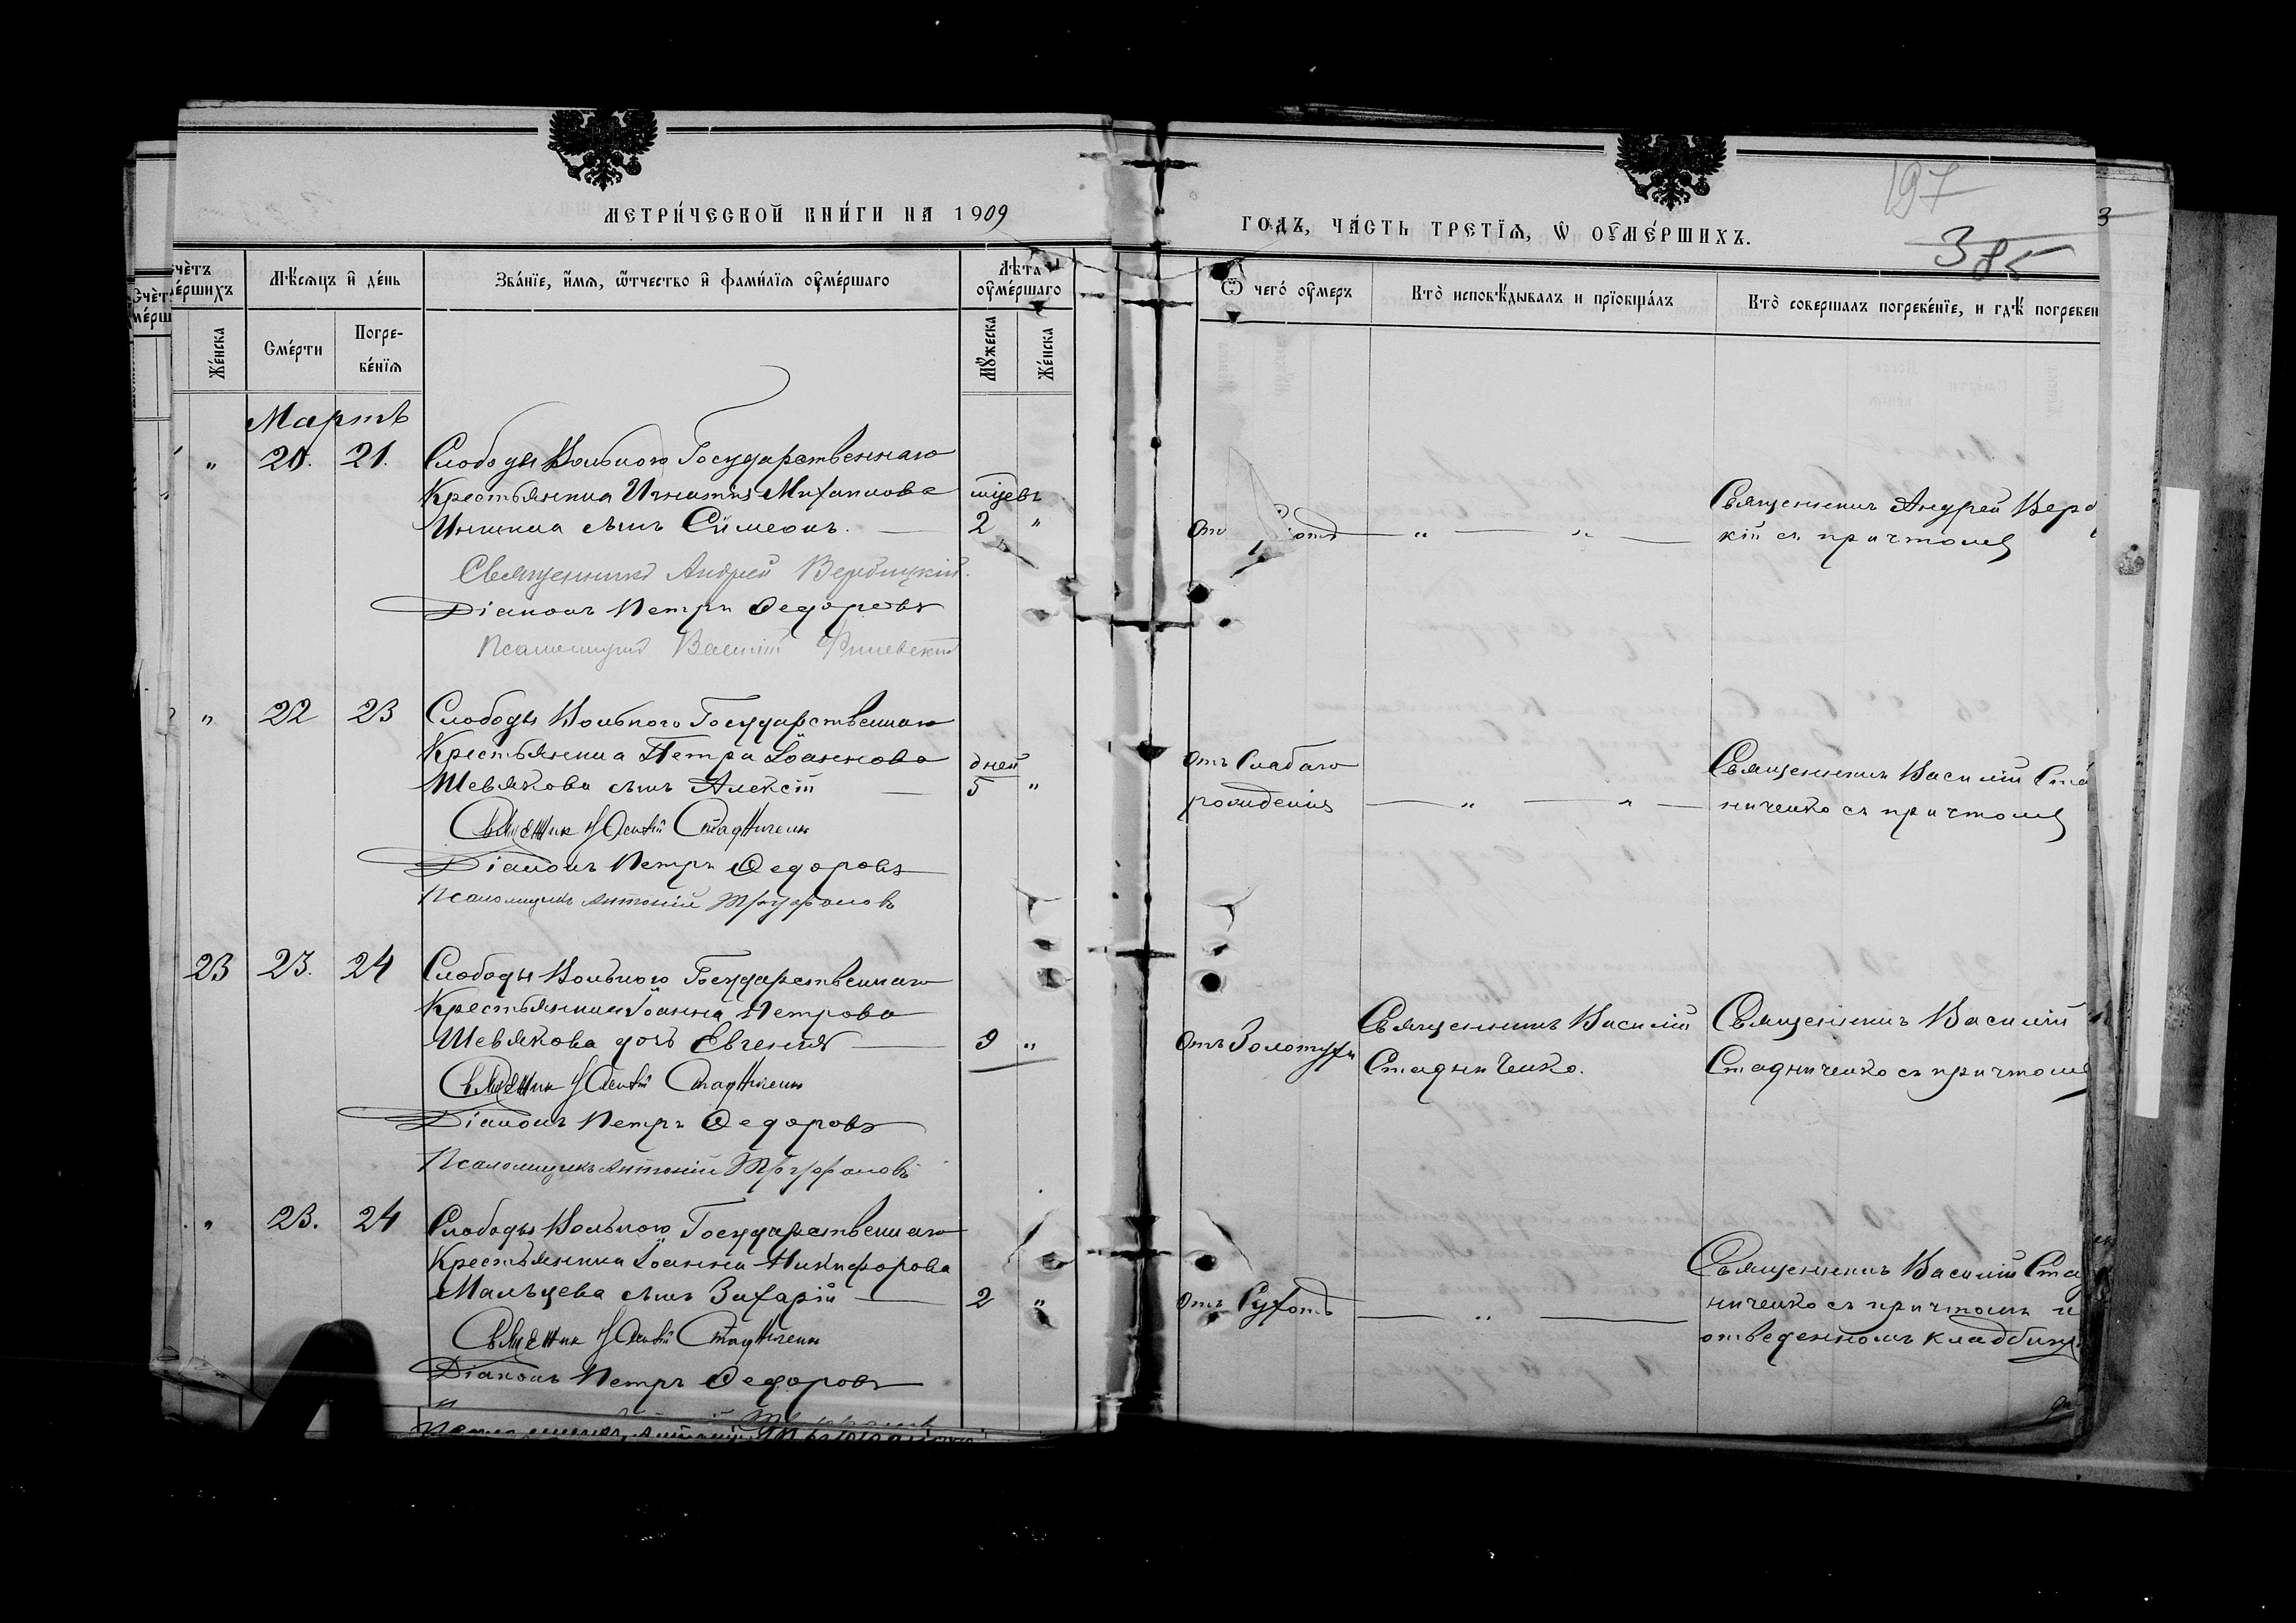 МЕТРИ́ЧЕСКОЙ КНИ́ГИ НА 1909
ГОДЪ, ЧА́СТЬ ТРЕТІѦ, Ѡ ОУМЕ́РШИХЪ.
197
385
3
счѐтъ
ме́ршихъ
Мѣ́сѧцъ и де́нь
Зва́нїе, и́мѧ, ѻ́тчество и фами́лїѧ оуме́ршаго
Лѣ́та
оуме́ршаго
Ѿ чегѡ̀ оу́меръ
Кто̀ исповѣ́дывалъ и прїобща́лъ
Кто̀ соверша́лъ погребе́нїе, и гдѣ̀ погребен
Же́нска
Сме́рти
Погре-
бе́нїѧ
Мꙋ́жеска
Же́нска
Мартъ
" 20. 21. Слободы Вольного Государственнаго
Крестьянина Игнатія Михаилова мѣсяцевъ
сынъ Сѵмеонъ. 2 "
Священникъ Андрей Вербицкій.
Діаконъ Петръ Ѳедоровъ
Псаломщикъ Василій
От
Священникъ Андрей Верб
кій съ причтомъ
" 22 23 Слободы Вольного Государственнаго
Крестьянина Петра Іоаннова дней
Шевякова сынъ Алексій 5 "
Священник Василій Стадниченко
Діаконъ Петръ Ѳедоровъ
Псаломщикъ Антоній Труфановъ
Отъ Слабаго
рожденія " "
Священникъ Василій Ста
ниченко съ причтомъ
23 23. 24 Слободы Вольного Государственнаго
Крестьянина Іоанна Петрова
Шевякова дочь Евгенія 9 "
Священник Василій Стадниченко
Діаконъ Петръ Ѳедоровъ
Псаломщикъ Антоній Труфановъ
Отъ Золотухи
Священникъ Василій
Стадниченко.
Священникъ Василій
Стадниченко съ причтом
" 23. 24 Слободы Вольного Государственнаго
Крестьянина Іоанна Никифорова
Мальцева сынъ Захарій 2 "
Священник Василій Стадниченко
Діаконъ Петръ Ѳедоровъ
Отъ Сухотъ "
Священникъ Василій Ста
ниченко съ причтомъ н
отведенномъ кладбищ